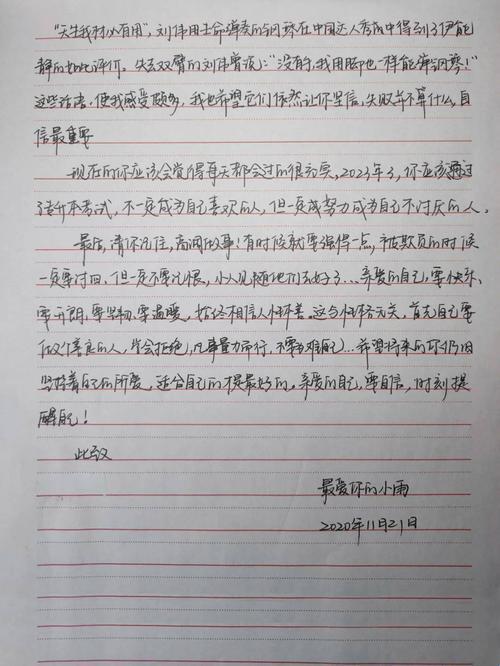 "天生我材必有用",刘伟用生命弹奏的钢琴在中国达人秀中得到了伊能
静的如此评价。失去双臂的刘伟曾说:"没有手,我用脚也一样能弹钢琴!"
这些话语,使我感受颇多,我也希望它们依然让你坚信,失败并不算什么,自
信最重要
现在的你应该会觉得每天都会过的很充实,2023年了,你应该通过
专升本考试,不一定成为自己喜欢的人,但一定成努力成为自己不讨厌的人。
最后,请你记住,高调做事!有时候就要强得一点,被欺负的时候
一定要讨回,但一定不要记恨,小人见随他们去好了…亲爱的自己,要快乐、
要开朗、要坚韧、要温暖,始终相信人性本善。这与性格无关,首先自己要
做个善良的人,学会拒绝,凡事量力而行,不要为难自己…希望将来的你仍旧
坚持着自己的所爱,适合自己的才是最好的。亲爱的自己,要自信,时刻提
醒自己!
此致
最爱你的小雨
2020年11月21日